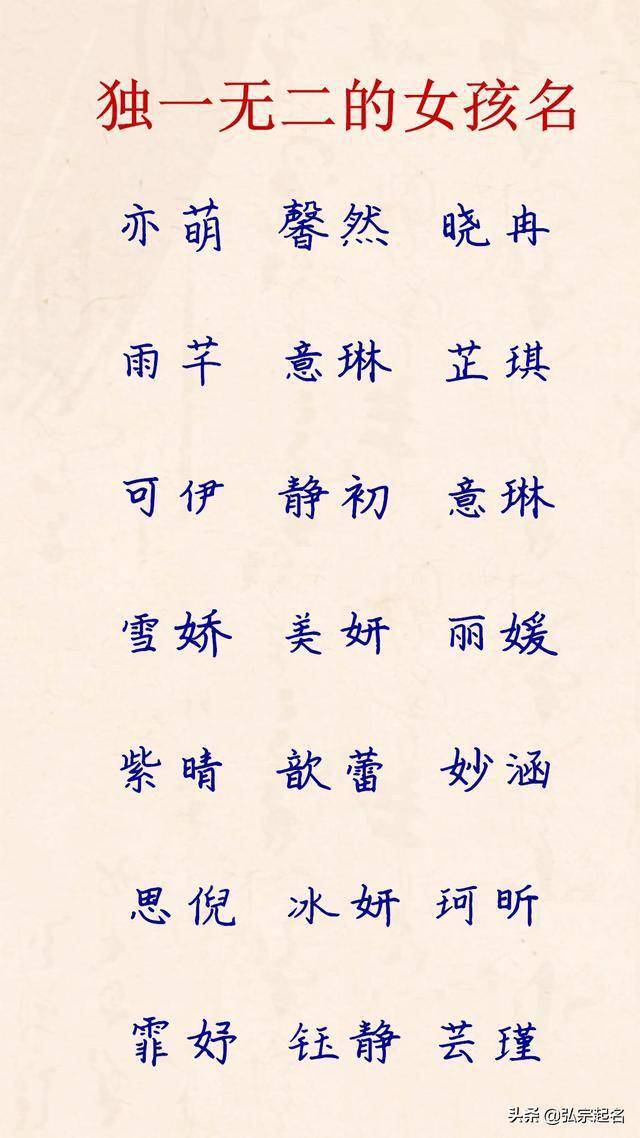 独一无二的女孩名
亦萌 馨然 晓冉
雨芊 意琳 芷琪
可伊 静初 意琳
雪娇 美妍 丽媛
紫晴 歆蕾 妙涵
思倪 冰妍 珂昕
霏妤 钰静 芸瑾
头条 @弘宗起名